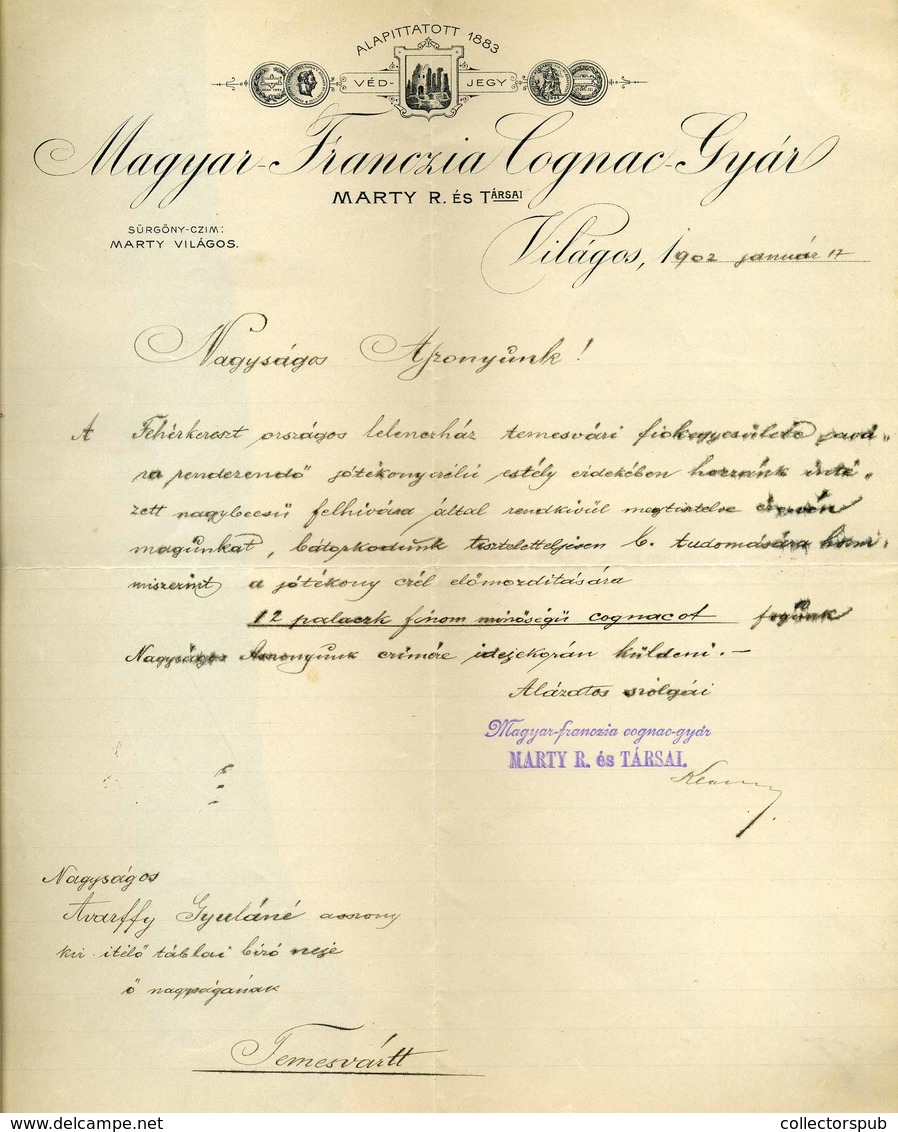 ALAPITTATOTT 1883
VÉD- JEGY
Magyar-Franczia Cognac-Gyár
MARTY R. ÉS TÁRSAI
SÜRGÖNY-CZIM:
MARTY VILÁGOS.
Világos, 1902 január 17
Nagyságos Asszonyunk!
A Fehérkereszt országos lelenczház temesvári fiókegyesülete javá„
ra rendezendő jótékonyczélú estély érdekében hozzánk inté„
zett nagybecsü felhivása által rendkivül megtisztelve érezvén
magunkat, bátorkodunk tiszteletteljesen b. tudomására hozni
miszerint a jótékony czél előmozditására
12 palaczk finom minőségü cognacot fogunk
Nagyságos Asszonyunk czimére idejekorán küldeni.—
Alázatos szolgái
Magyar-franczia cognac-gyár
MARTY R. és TÁRSAI.
Nagyságos
Avarffy Gyuláné asszony
kir. itélő táblai biró neje
ő nagyságának
Temesvártt
collectorspub
delcampe.net